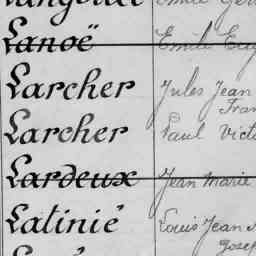 Lanoë Emile Eug
Larcher Jules Jean
Fran
Larcher Paul Victo
Lardeux Jean Marie
Latinié Louis Jean
Josep